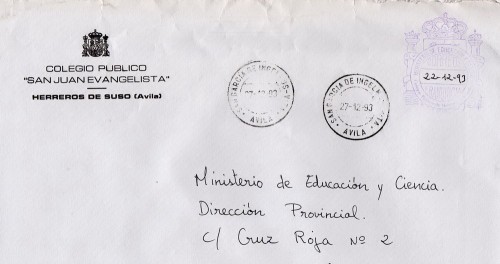 COLEGIO PUBLICO
"SAN JUAN EVANGELISTA"
HERREROS DE SUSO (Avila)
SAN GARCIA DE INGELMOS
27-12-93
AVILA
SAN GARCIA DE INGELMOS
27-12-93
AVILA
22-12-93
Ministerio de Educación y Ciencia.
Dirección Provincial.
C/ Cruz Roja Nº 2